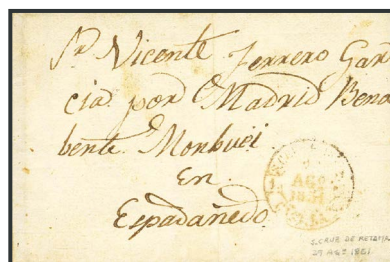 Sr. Vicente Ferrero Gar
cia por Madrid Bena
bente Monbuei
En
Espadañedo.
AGO
1851
S. CRUZ DE RETAMAR
27 AGT 1851